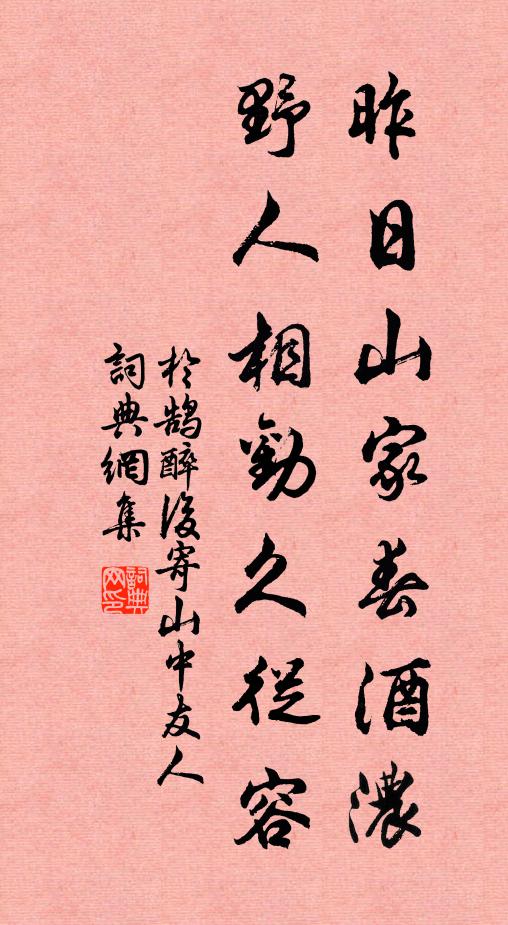 昨日山家春酒濃
野人相勸久從容
於鵠醉後寄山中友人
詞典網集
詞典网印